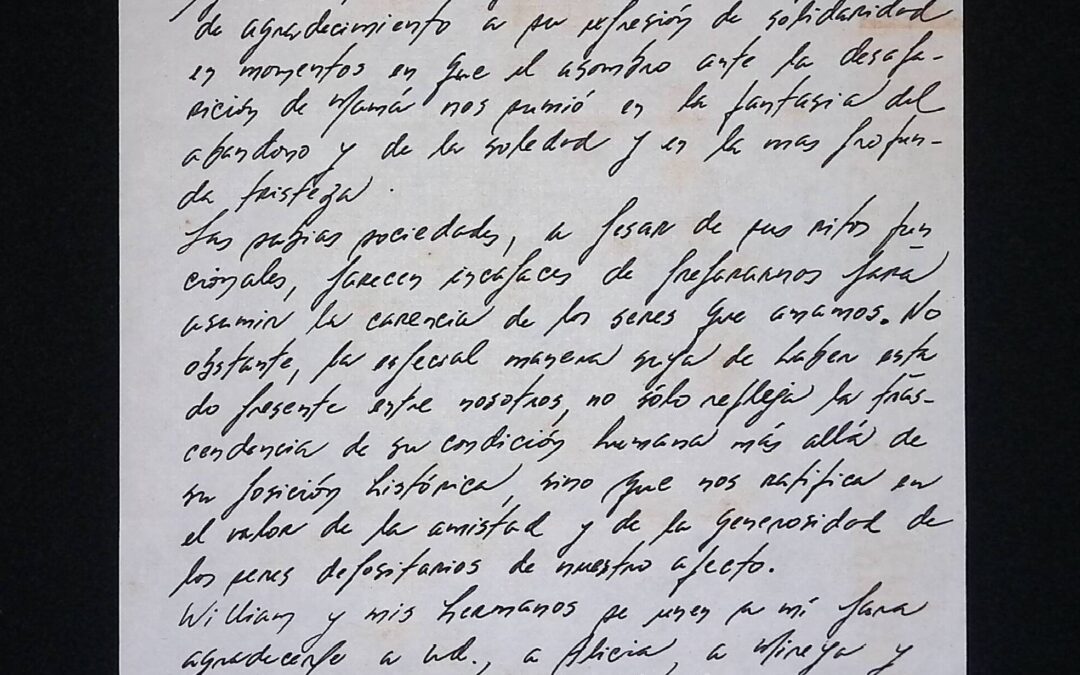 de agradecimiento a su expresión de solidaridad
en momentos en que el asombro ante la desapa-
rición de Mamá nos sumió en la fantasía del
abandono y de la soledad y en la mas profun-
da tristeza.
Las sabias sociedades, a pesar de sus ritos fun
cionales, parecen incapaces de prepararnos para
asumir la carencia de los seres que amamos. No
obstante, la especial manera suya de haber esta
do presente entre nosotros, no sólo refleja la tras-
cendencia de su condición humana más allá de
su posición histórica, sino que nos ratifica en
el valor de la amistad y de la generosidad de
los seres depositarios de nuestro afecto.
William y mis hermanos se unen a mí para
agradecerle a Ud., a Alicia, a Mireya y